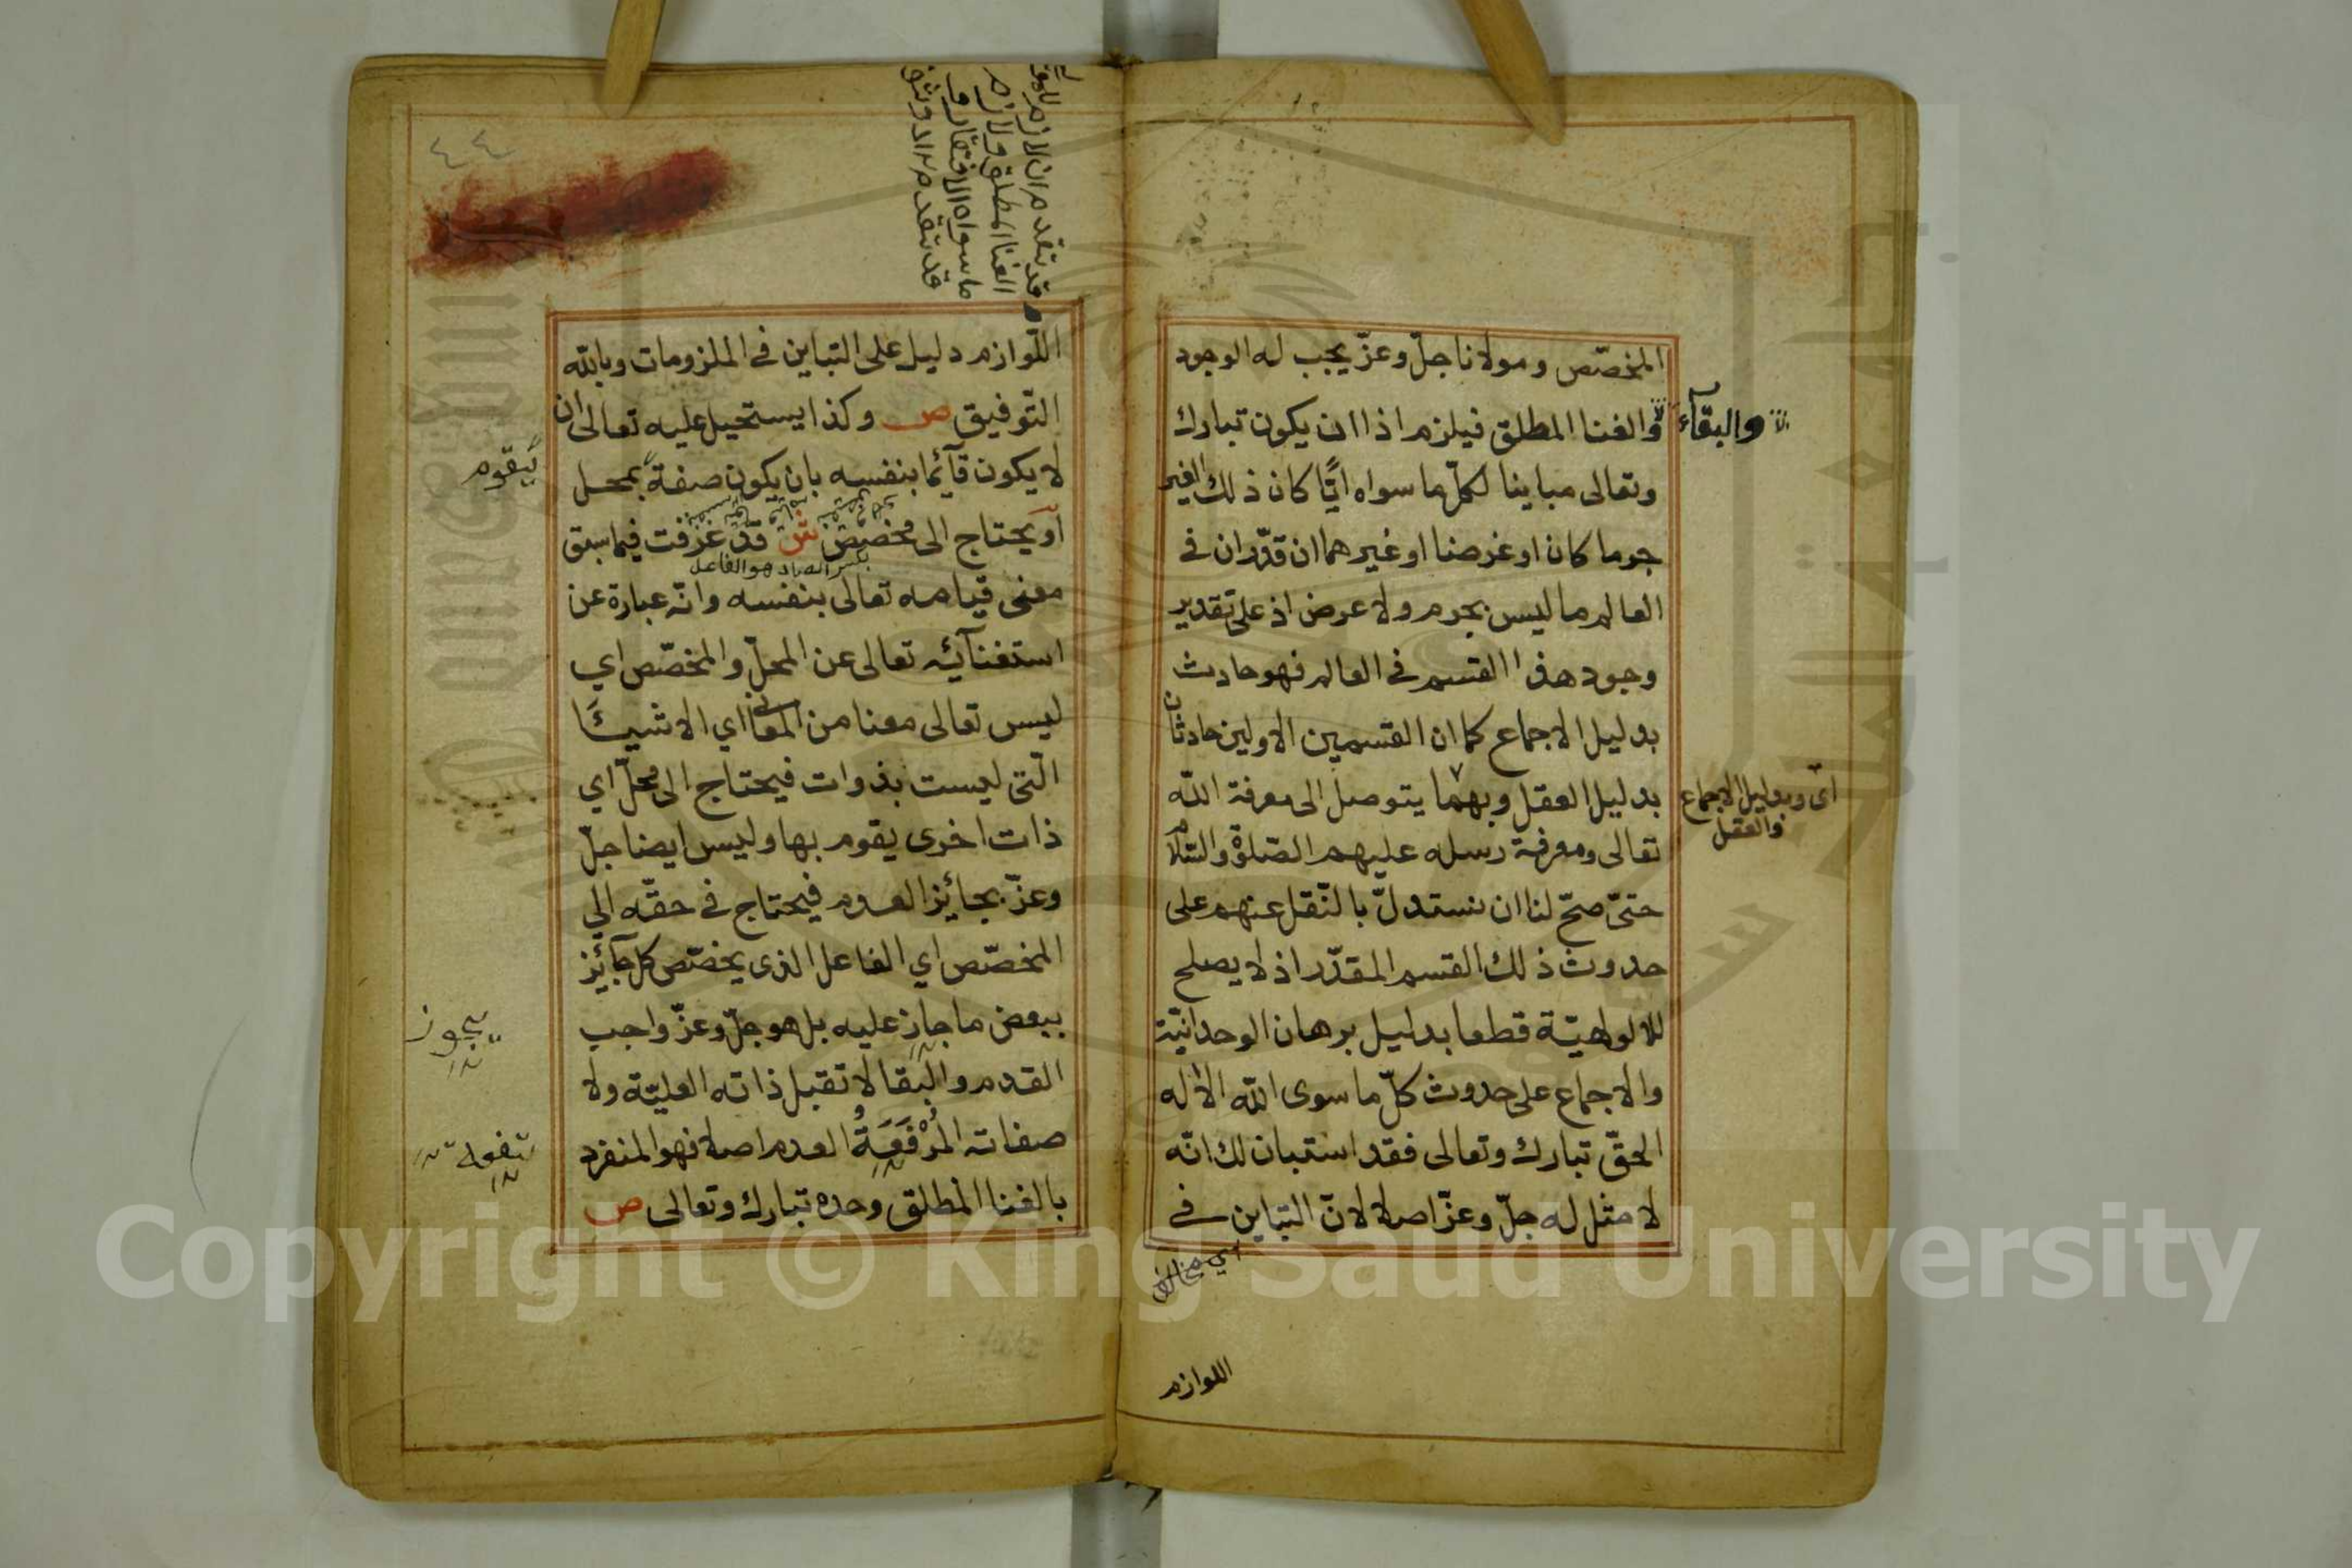 المخصّص ومولانا جلّ وعزّ يجب له الوجود
والغنا المطلق فيلزم اذا ان يكون تبارك
والبقآء
وتعالى مباينا لكلّ ما سواه ايًّا كان ذلك الغير
جرما كان او عرضا او غيرهما ان قدّر ان في
العالم ما ليس بجرم ولا عرض اذ على تقدير
وجود هذا القسم في العالم فهو حادث
بدليل الاجماع كما ان القسمين الاولين حادثان
بدليل العقل وبهما يتوصل الى معرفة اللّه
اى وبدليل الاجماع
والعقل
تعالى ومعرفة رسله عليهم الصّلوة والسّلام
حتىّ صحّ لنا ان نستدلّ بالنّقل عنهم على
حدوث ذلك القسم المقدّر اذ لا يصلح
للالوهيّة قطعا بدليل برهان الوحدانيّة
والاجماع على حدوث كلّ ما سوى اللّه الاله
الحقّ تبارك وتعالى فقد استبان لك انّه
لا مثل له جلّ وعزّ اصلا لانّ التباين في
اللوازم
٤٤
قد تقدم ان لازم
الغنا المطلق ولازم
ما سواه الافتقار
قد تقدم
اللّوازم دليل على التباين في الملزومات وباللّه
التّوفيق ص وكذا يستحيل عليه تعالى ان
لا يكون قآئما بنفسه بان يكون صفة بمحل
يقوم
او يحتاج الى مخصص ش قد عرفت فيما سبق
بكسر الصاد هو الفاعل
معنى قيامه تعالى بنفسه وانّه عبارة عن
استغنآئه تعالى عن المحلّ والمخصّص اي
ليس تعالى معنا من المعاني اي الاشيئا
الّتى ليست بذوات فيحتاج الى محلّ اي
ذات اخرى يقوم بها وليس ايضا جلّ
وعزّ بجائز العدم فيحتاج في حقّه الي
المخصّص اي الفاعل الذى يخصّص كل جآئز
ببعض ما جاز عليه بل هو جلّ وعزّ واجب
يجوز
القدم والبقا لا تقبل ذاته العليّة ولا
صفاته المرفعة العدم اصلا فهو المنفرد
بالغنا المطلق وحده تبارك وتعالى ص
Copyright © King Saud University